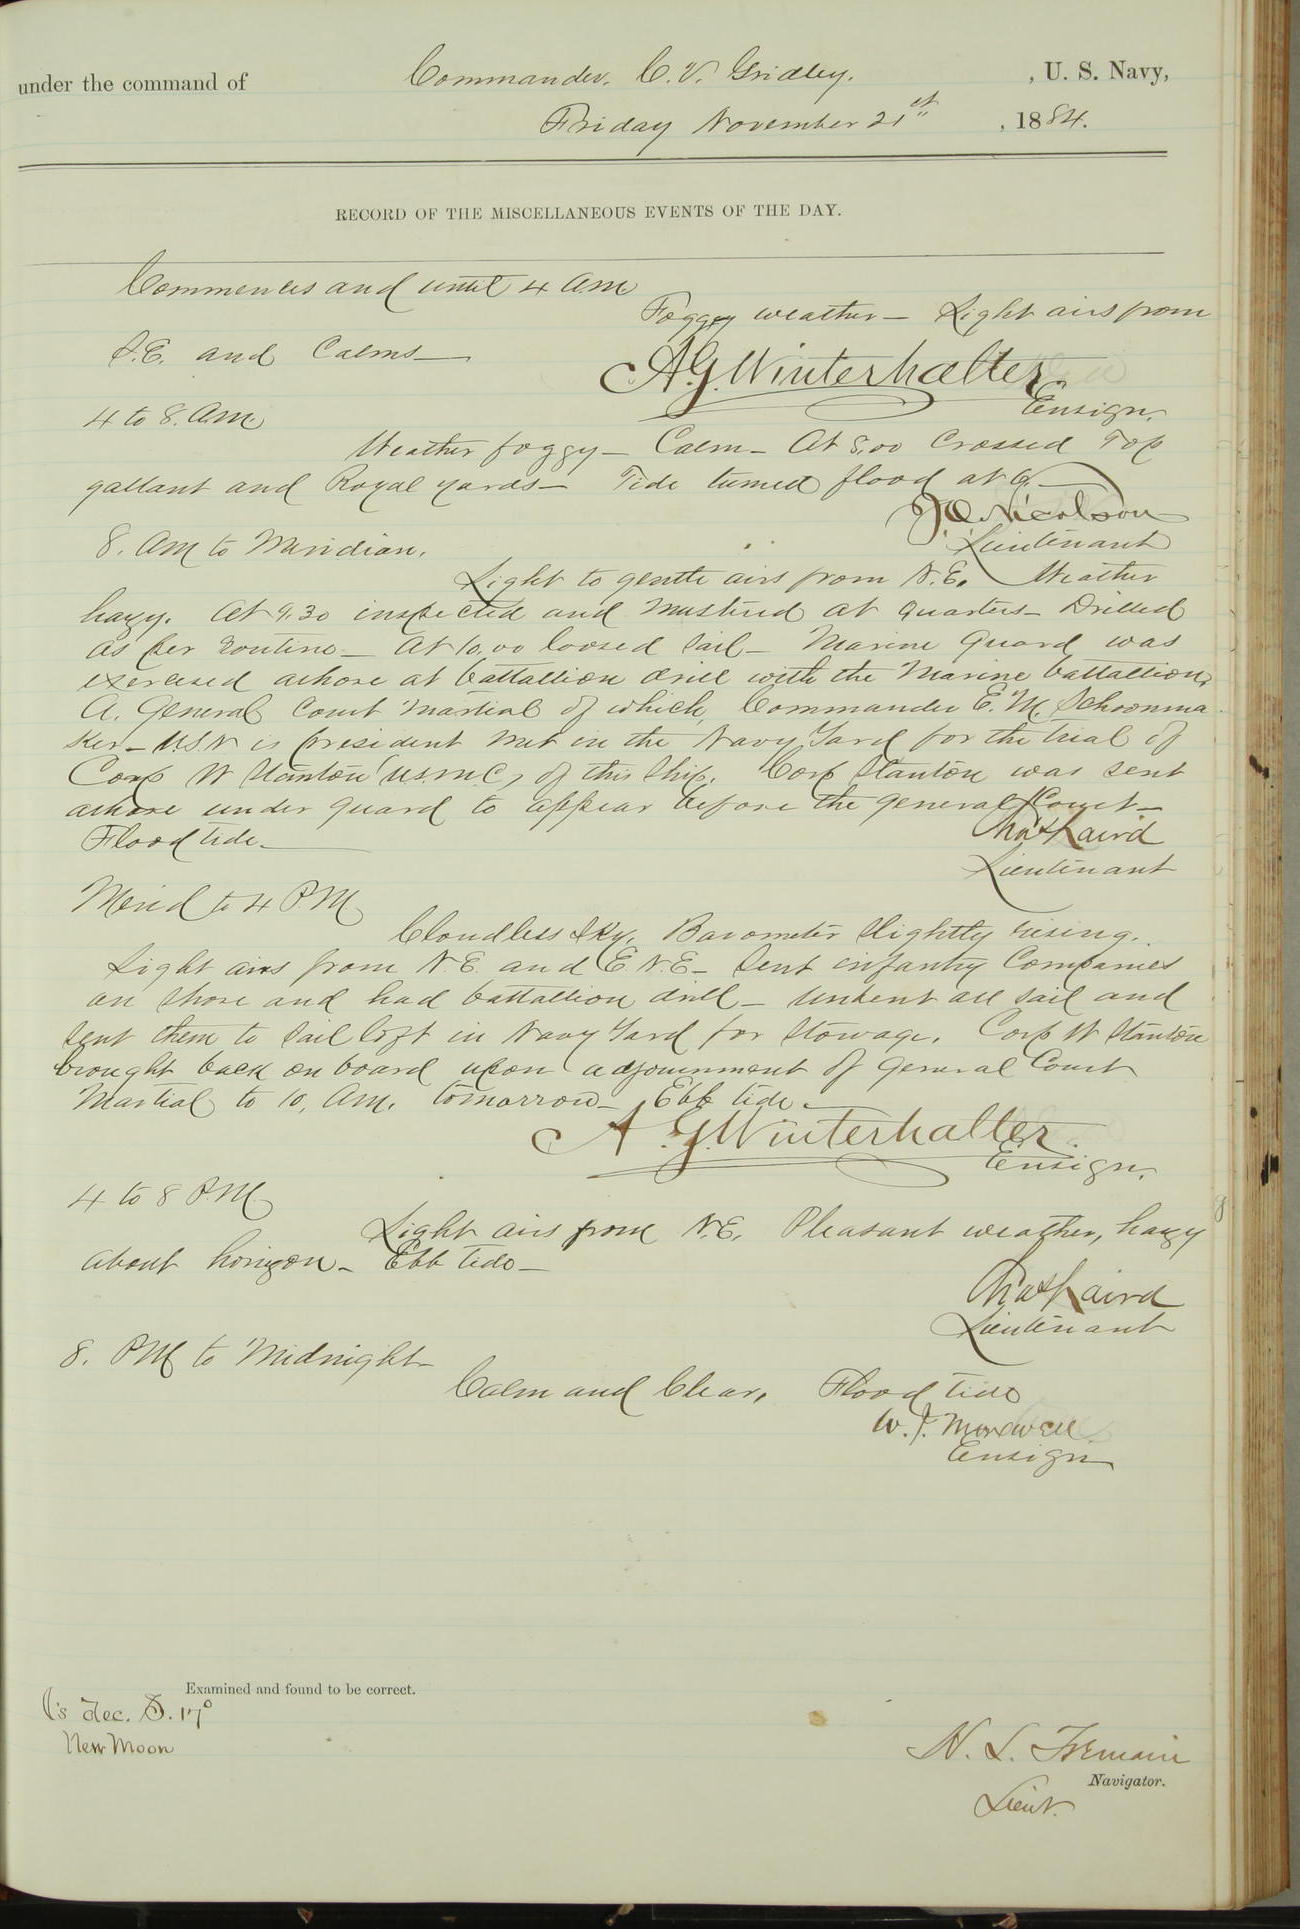 under the command of Commander. C. V. Gridley. , U. S. Navy,
Friday November 21st , 1884.
RECORD OF THE MISCELLANEOUS EVENTS OF THE DAY.
Commences and until 4 A.M.
Foggy weather — Light airs from
S.E. and Calms —
A.G. Winterhalter
Ensign.
4 to 8. A.M.
Weather foggy — Calm — At 8.00 Crossed Top
gallant and Royal yards — Tide turned flood at 6. —
Nicolson
Lieutenant
8. AM to Meridian.
Light to gentle airs from N.E. Weather
hazy. At 9.30 inspected and mustered at quarters — Drilled
as per routine — At 10.00 loosed sail — Marine Guard was
exercised ashore at battallion drill with the Marine battallion,
A. General Court Martial of which, Commander E. M. Schoonma
ker — USN is president met in the Navy Yard for the trial of
Corp W Stanton (USMC, of this ship. Corp Stanton was sent
ashore under guard to appear before the general Court —
Flood tide —
Chas Laird
Lieutenant
Merid to 4 P.M.
Cloudless sky. Barometer slightly rising.
Light airs from N.E. and E.N.E — Sent infantry Companies
on shore and had battallion drill — Unbent all sail and
sent them to sail loft in Navy Yard for stowage. Corp W Stanton
brought back on board upon adjournment of General Court
Martial to 10, AM. tomorrow — Ebb tide. —
A.G. Winterhalter.
Ensign.
4 to 8 P.M.
Light airs from N.E. Pleasant weather, hazy
about horizon — Ebb tide —
Chas Laird
Lieutenant
8. PM to Midnight —
Calm and Clear. Flood tide
W. J. Maxwell
Ensign
Examined and found to be correct.
☾'s dec. S. 17°
New Moon
H. L. Tremain
Navigator.
Lieut.